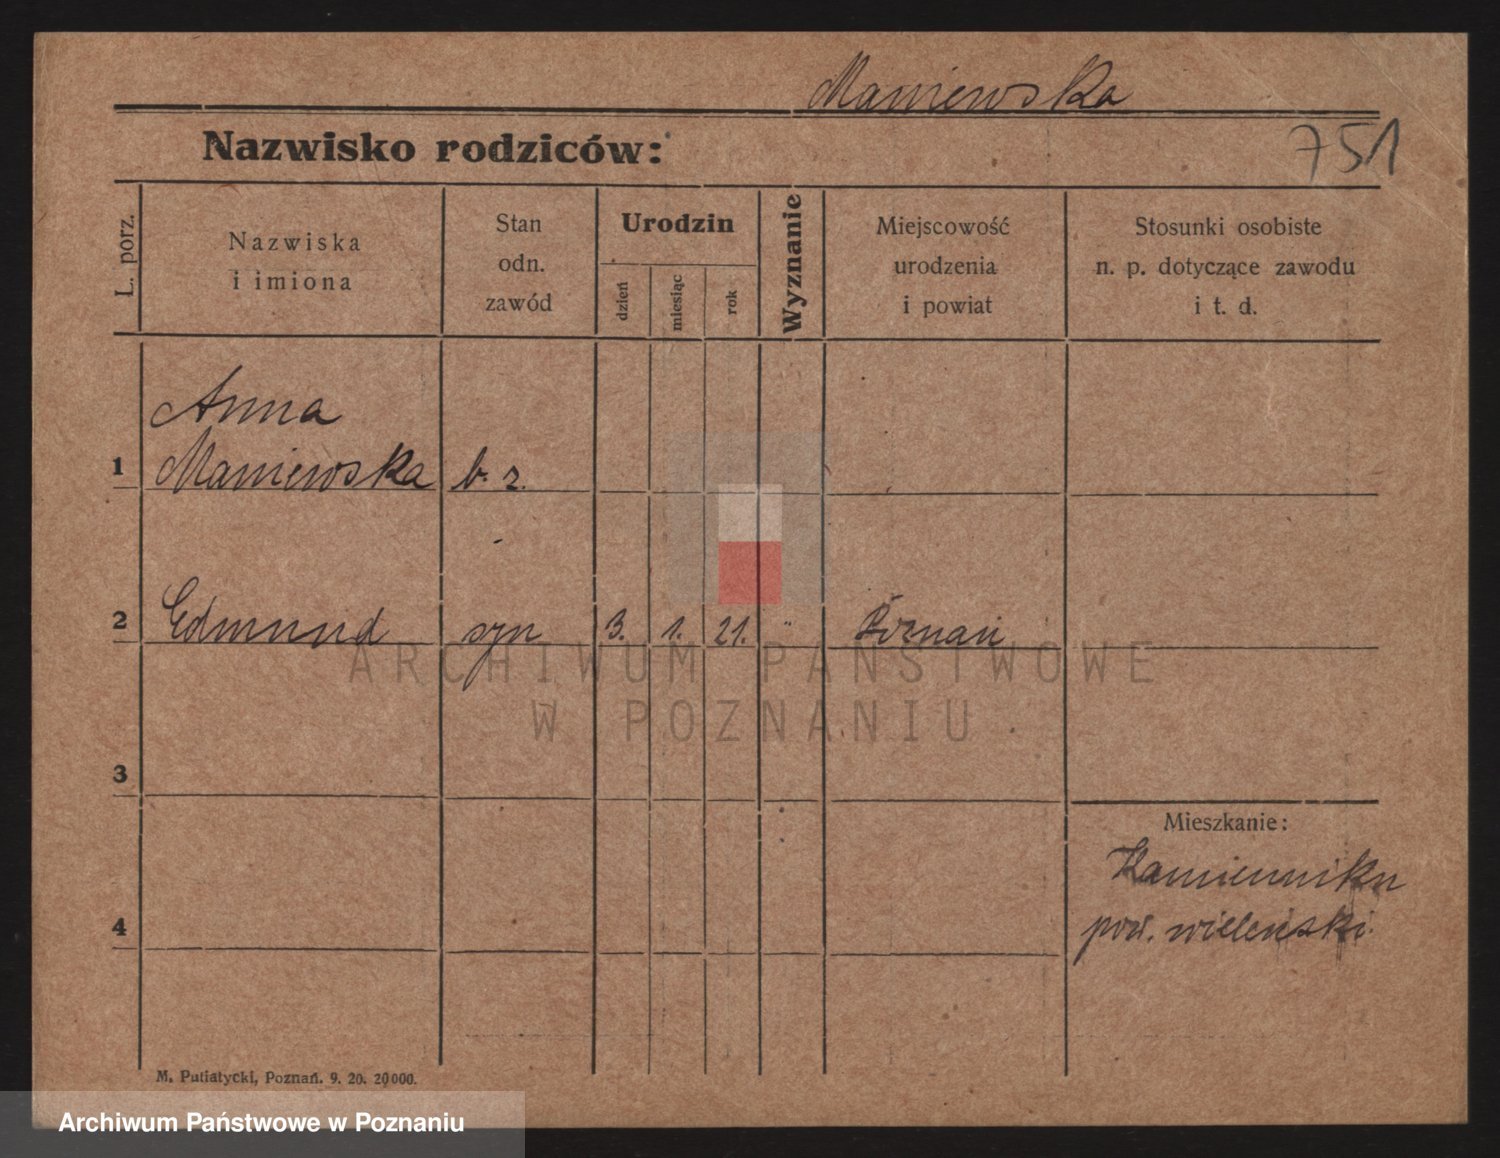 Maniewska
Nazwisko rodziców:
751
L. porz.
Nazwiska
i imiona
Stan
odn.
zawód
Urodzin
dzień
miesiąc
rok
Wyznanie
Miejscowość
urodzenia
i powiat
Stosunki osobiste
n. p. dotyczące zawodu
i t. d.
Anna
1 Maniewska b. z.
2 Edmund syn 3. 1. 21. " Poznań
ARCHIWUM PAŃSTWOWE
W POZNANIU
3
Mieszkanie:
Kamienniku
4 pow. wieleński.
M. Putiatycki, Poznań. 9. 20. 20000.
Archiwum Państwowe w Poznaniu